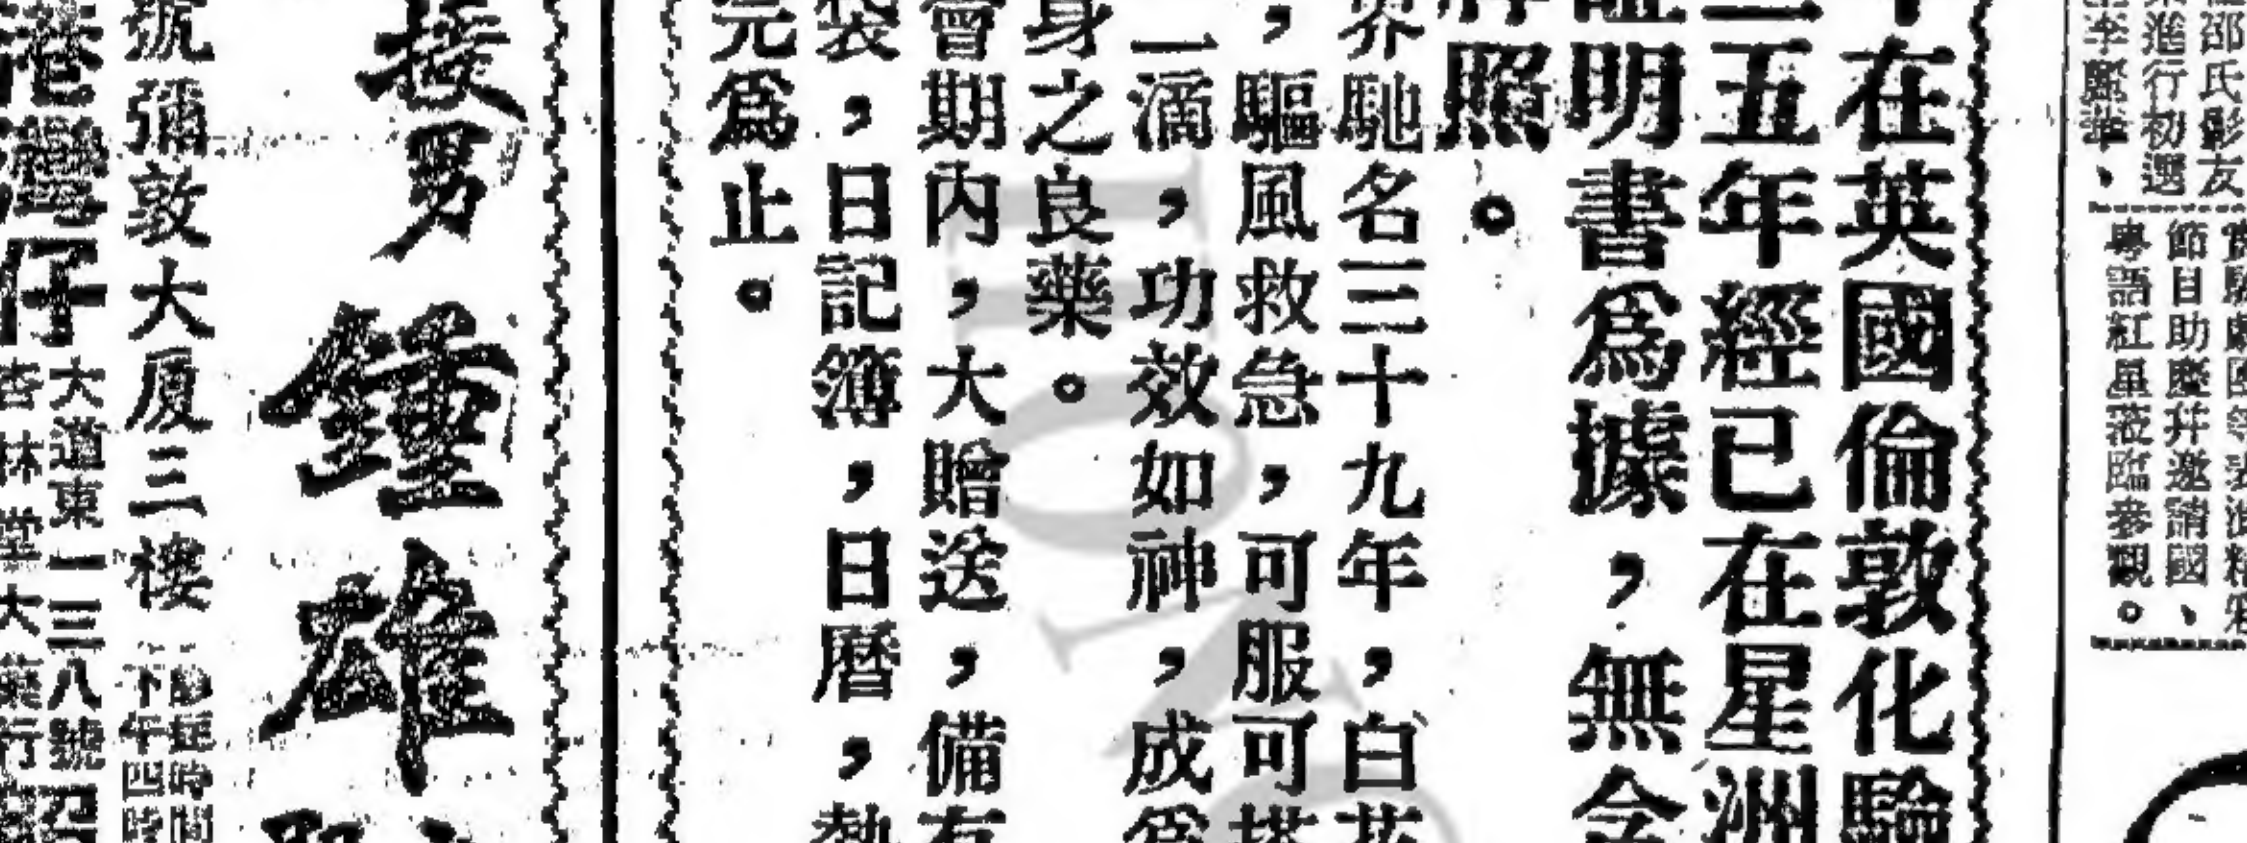 邵氏影友
進行初選
李
賓
節目助慶幷邀請國、
粵語紅星蒞臨參觀。
在英國倫敦化驗
二五年經已在星洲
証明書爲據，無
牌照。
界馳名三十九年，白花
，驅風救急，可服可搽
一滴，功效如神，成爲
身之良藥。
會期內，大贈送，備有
袋，日記簿，日曆，熱
完爲止。
接男
鍾雄
號彌敦大厦三樓
時間
下午四時
港灣仔
大道東一三八號
杏林堂大藥行